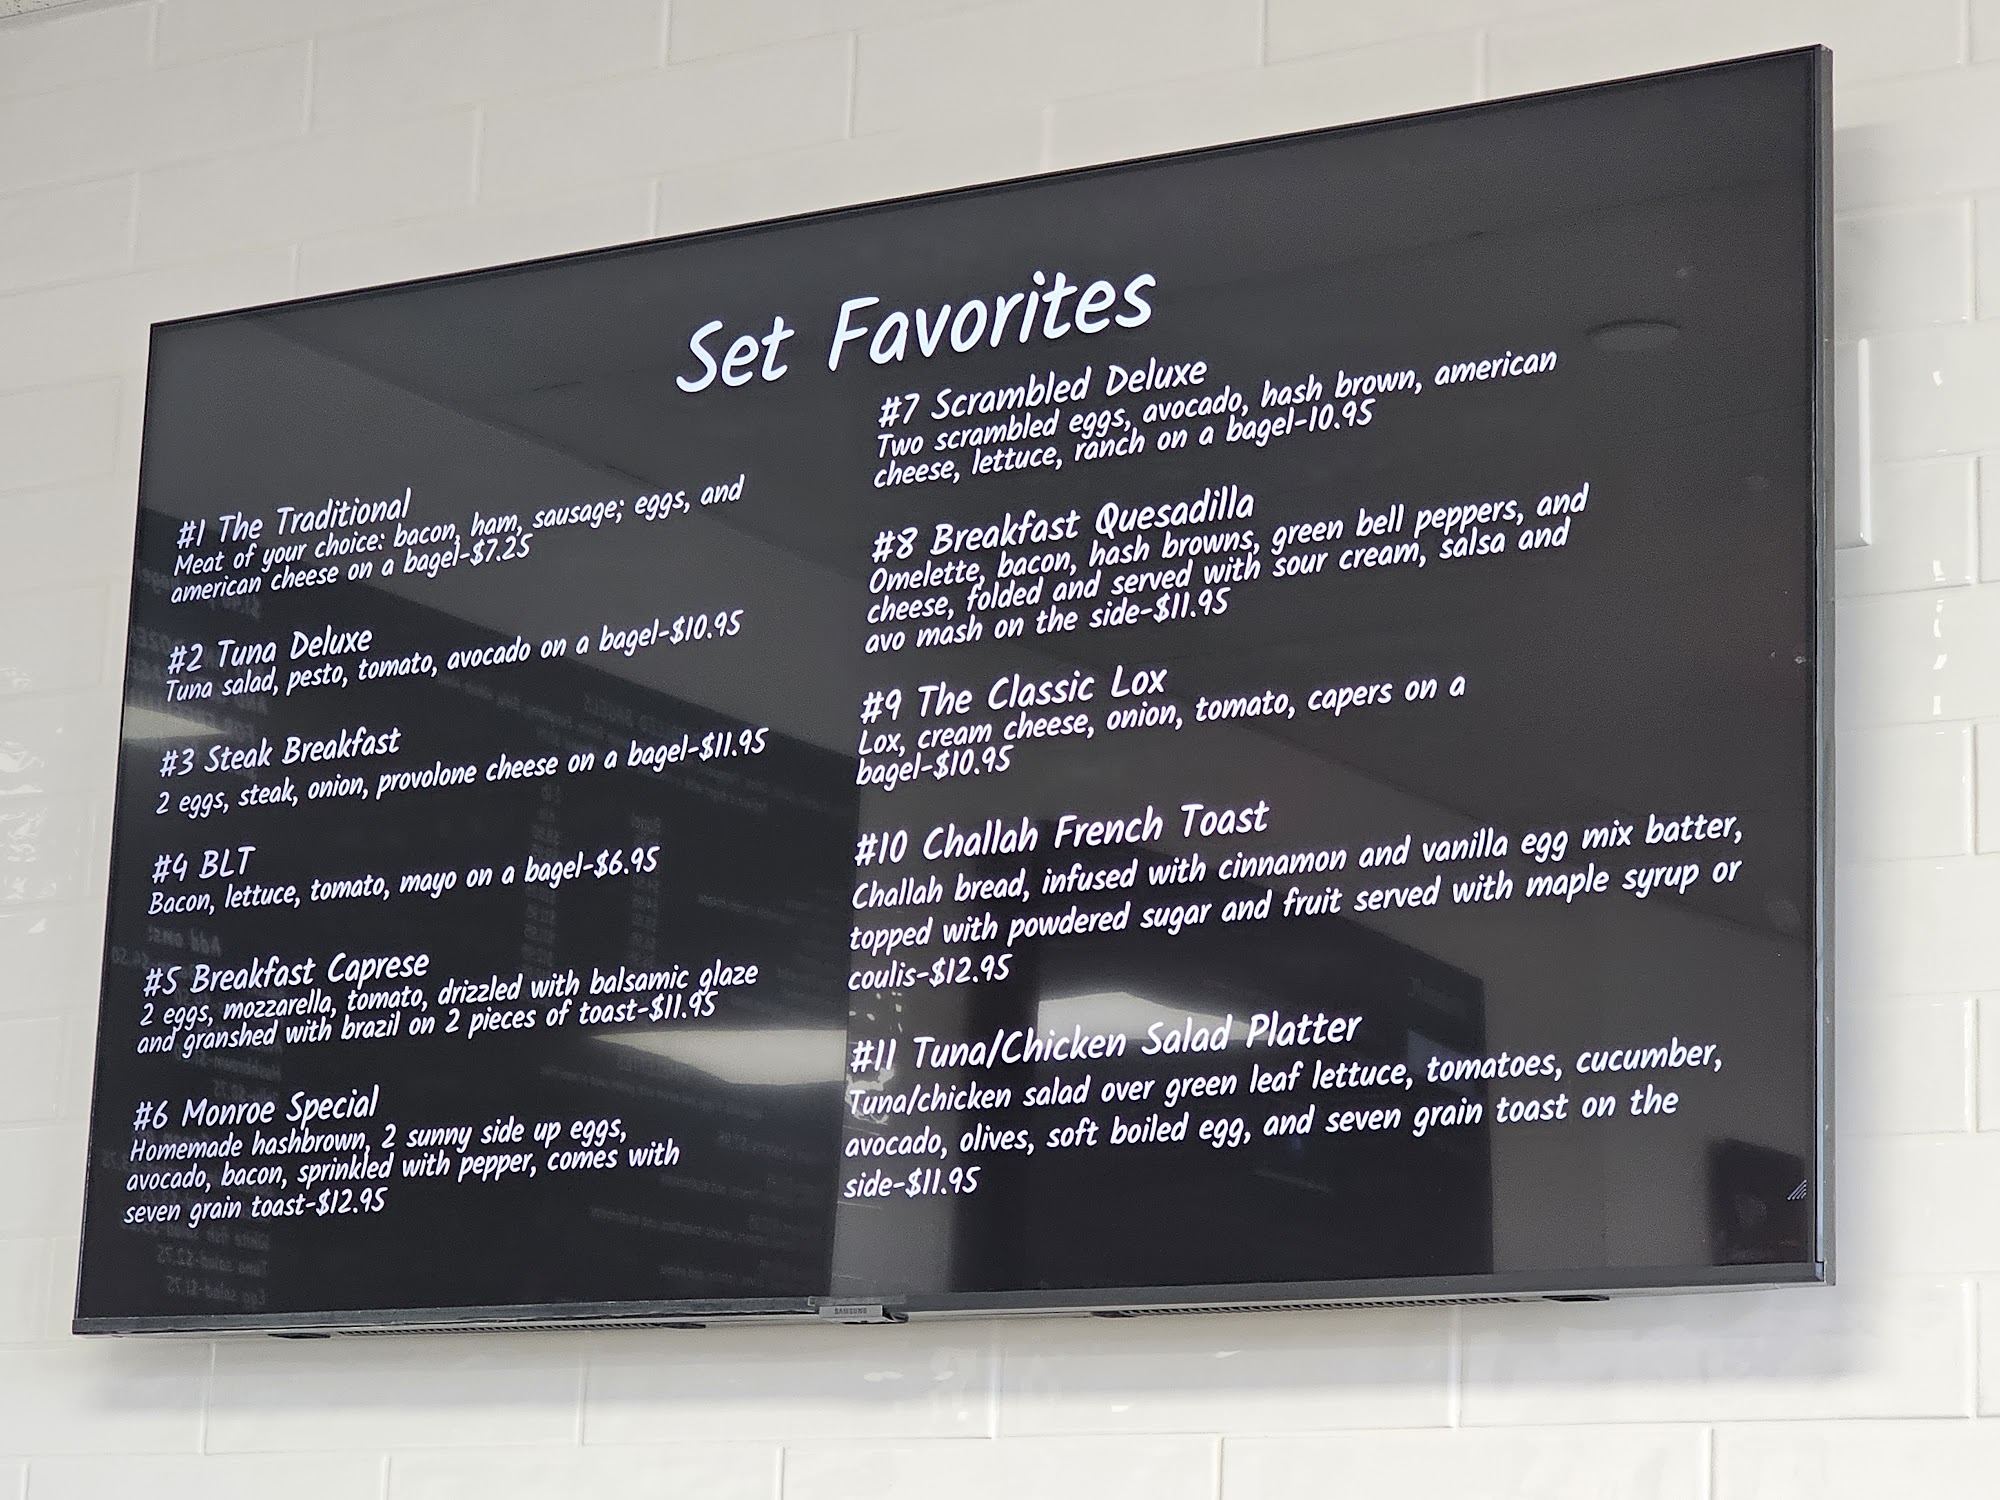 Set Favorites
#1 The Traditional
Meat of your choice: bacon, ham, sausage; eggs, and
american cheese on a bagel-$7.25
#2 Tuna Deluxe
Tuna salad, pesto, tomato, avocado on a bagel-$10.95
#3 Steak Breakfast
2 eggs, steak, onion, provolone cheese on a bagel-$11.95
#4 BLT
Bacon, lettuce, tomato, mayo on a bagel-$6.95
#5 Breakfast Caprese
2 eggs, mozzarella, tomato, drizzled with balsamic glaze
and granshed with brazil on 2 pieces of toast-$11.95
#6 Monroe Special
Homemade hashbrown, 2 sunny side up eggs,
avocado, bacon, sprinkled with pepper, comes with
seven grain toast-$12.95
#7 Scrambled Deluxe
Two scrambled eggs, avocado, hash brown, american
cheese, lettuce, ranch on a bagel-10.95
#8 Breakfast Quesadilla
Omelette, bacon, hash browns, green bell peppers, and
cheese, folded and served with sour cream, salsa and
avo mash on the side-$11.95
#9 The Classic Lox
Lox, cream cheese, onion, tomato, capers on a
bagel-$10.95
#10 Challah French Toast
Challah bread, infused with cinnamon and vanilla egg mix batter,
topped with powdered sugar and fruit served with maple syrup or
coulis-$12.95
#11 Tuna/Chicken Salad Platter
Tuna/chicken salad over green leaf lettuce, tomatoes, cucumber,
avocado, olives, soft boiled egg, and seven grain toast on the
side-$11.95
SAMSUNG